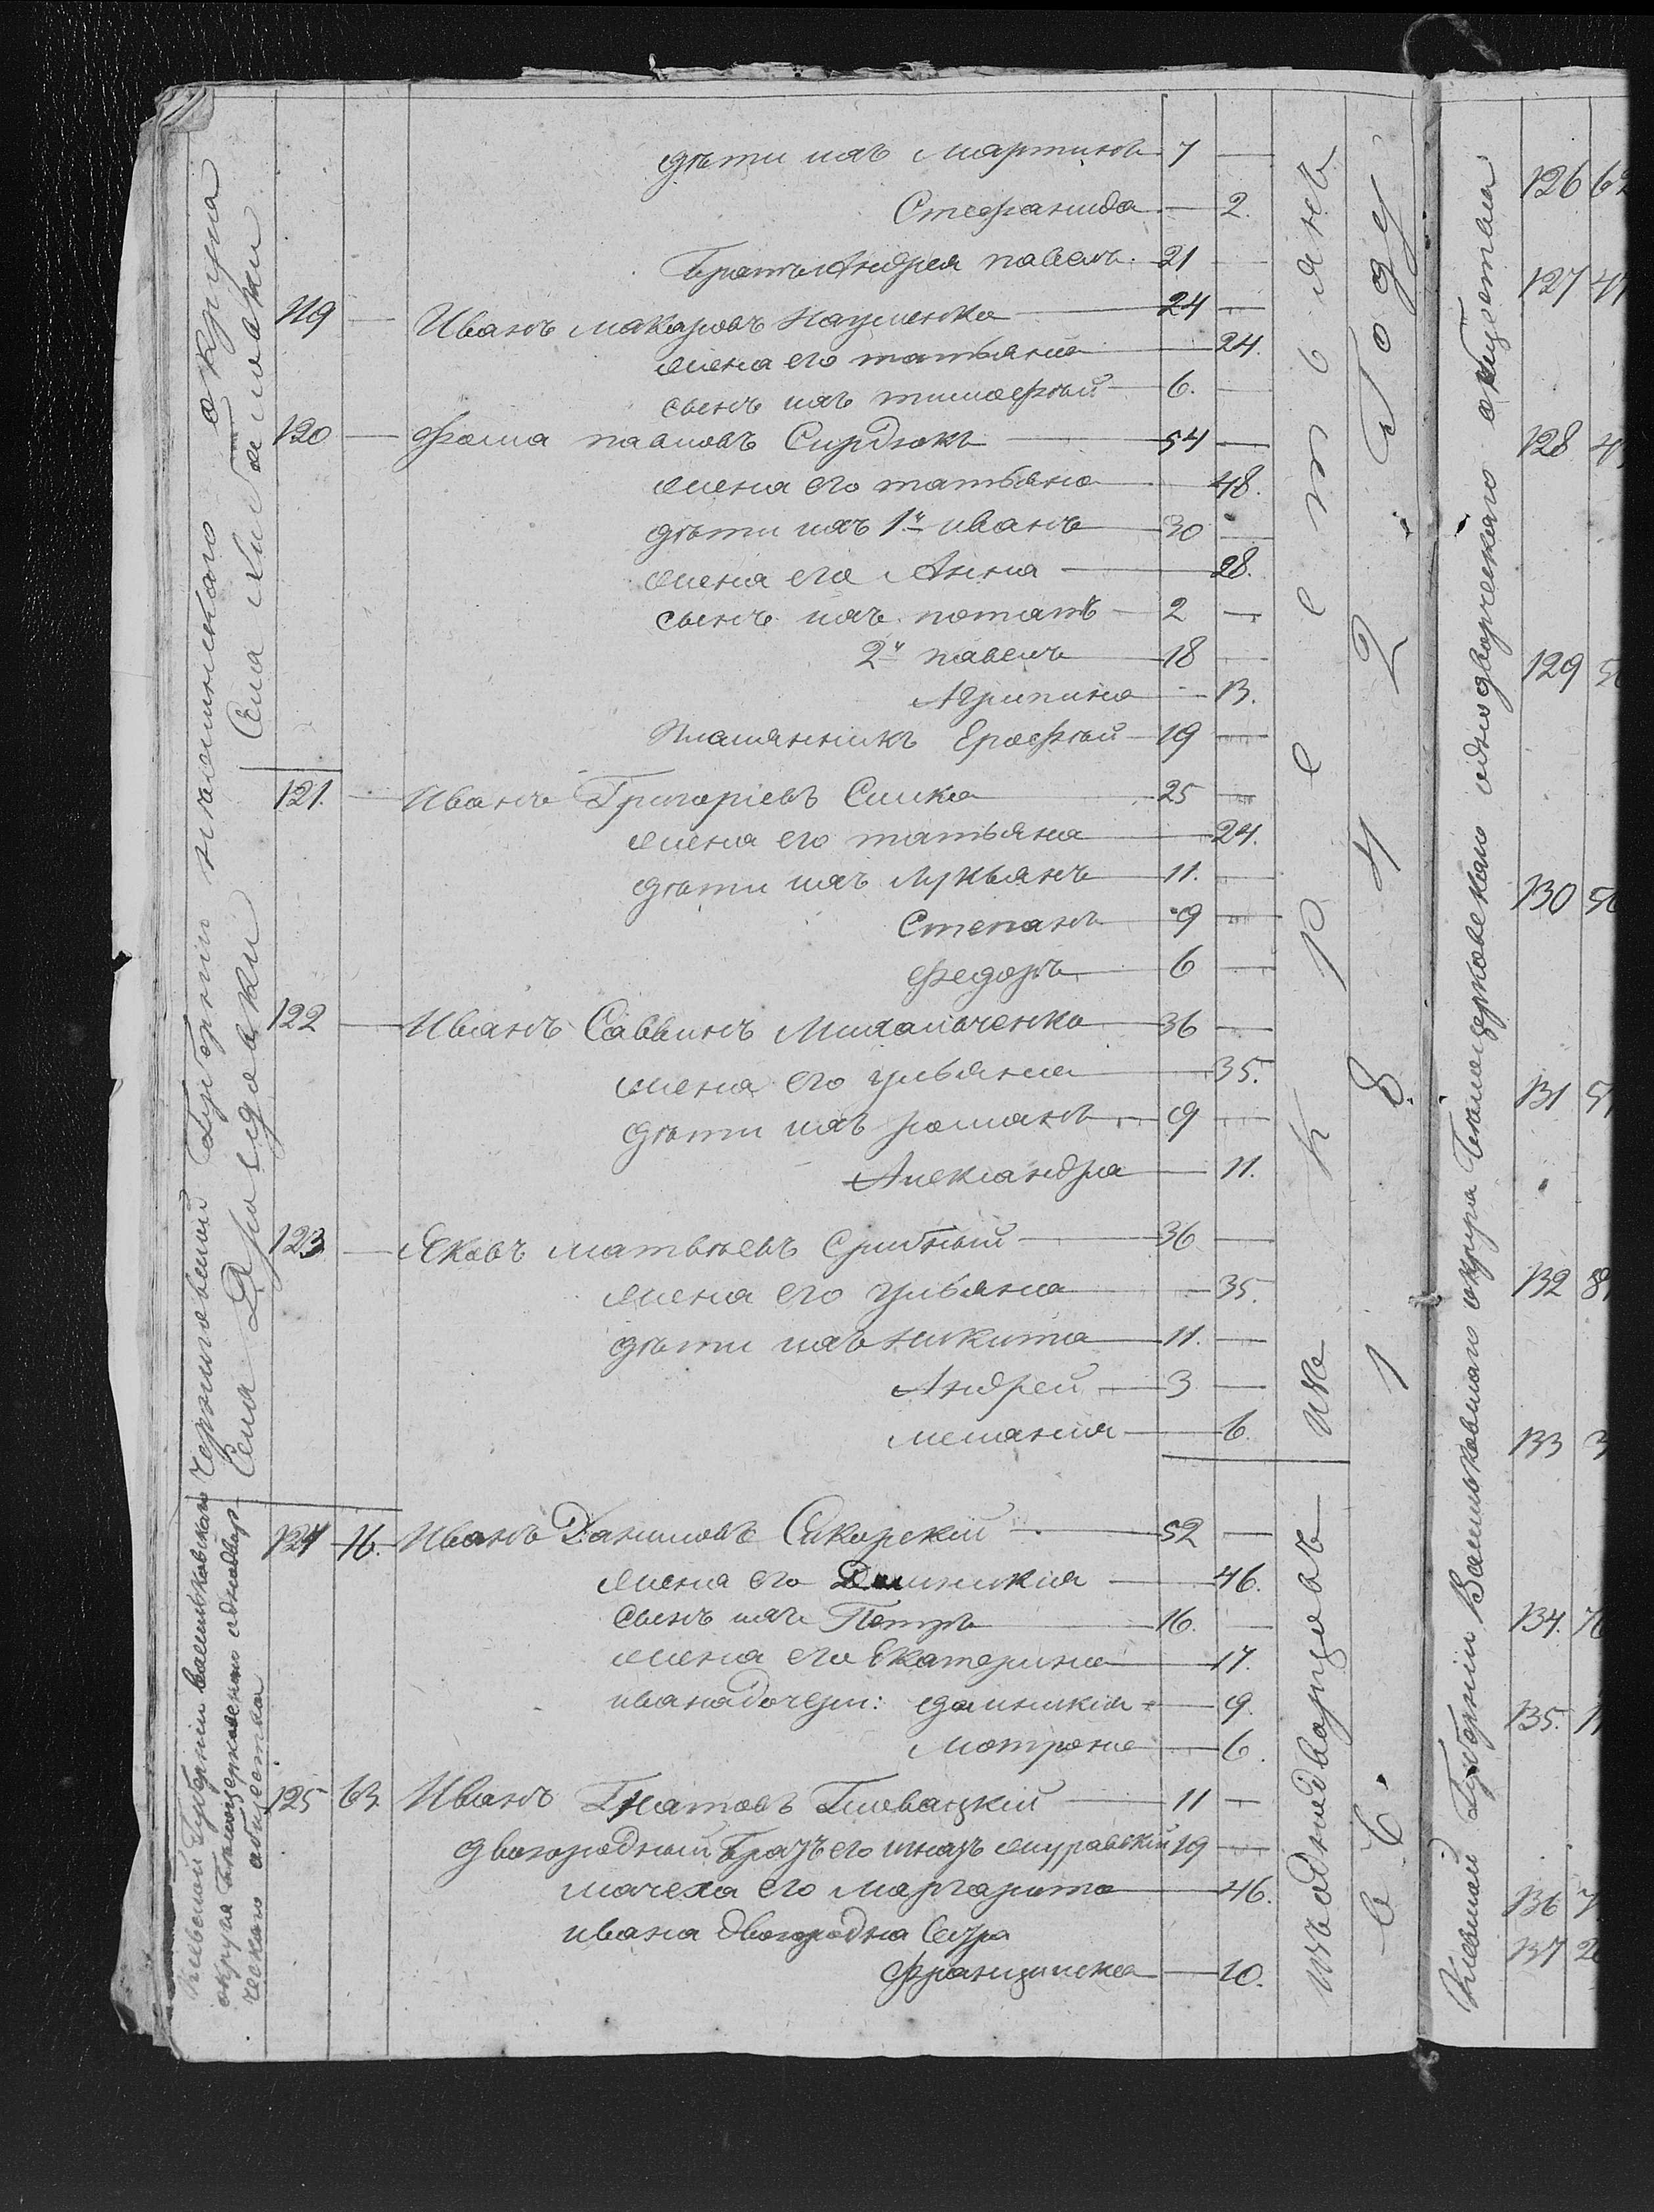 дѣти ихъ Мартинъ 7 —
Стефанида — 2.
Братъ Андрея павелъ. 21 —
119 — Иванъ макаровъ Науменко — 24 —
жена его татьяна — 24.
сынъ ихъ тимофѣй 6. —
120 — Фома павловъ Сирдюкъ — 54 —
жена его татьяна — 48.
дѣти ихъ 1й иванъ — 30 —
жена его Анна — 28.
сынъ ихъ потапъ — 2 —
2й павелъ — 18 —
Агрипина — 13.
Племянникъ Ерофѣй — 19 —
121. — Иванъ Григоріевъ Синка — 25 —
жена его татьяна — 24.
дѣти ихъ Лукьянъ — 11. —
Степанъ 9 —
Федоръ 6 —
122 — Иванъ Саввинъ Михальченко — 36 —
жена его ульяна — 35.
дѣти ихъ романъ 9 —
Александра — 11.
123 — Яковъ матвѣевъ Срибный — 36 —
жена его ульяна — 35.
дѣти ихъ никита — 11. —
Андрей — 3 —
меланія — 6.
124 16. Иванъ Даниловъ Сикорскій — 52 —
жена его Доминикія — 46.
сынъ ихъ Петръ — 16. —
жена его Екатерина — 17.
ивана дочери: доминикія — 9.
Мотрона — 6.
125 63. Иванъ Гнатовъ Гловацкій — 11 —
двоюродный братъ его игнатъ журавскій 19 —
мачеха его маргарита — 46.
ивана двоюродна Сестра
Францишка — 10.
Черниговской Губерніи нѣжинскаго округа
Села Ярославки
Кіевской Губерніи васильковскаго
округа Бѣлоцерковскаго однодвор-
ческаго общества
изъ однодворцовъ
ихъ крестьянъ
въ 1842 Году
Кіевской Губерніи Васильковскаго округа Бѣлоцерковскаго однодворческаго общества
126 62
127 4
128 4
129 5
130 5
131 5
132 8
133 3
134. 7
135. 1
136 7
137 2